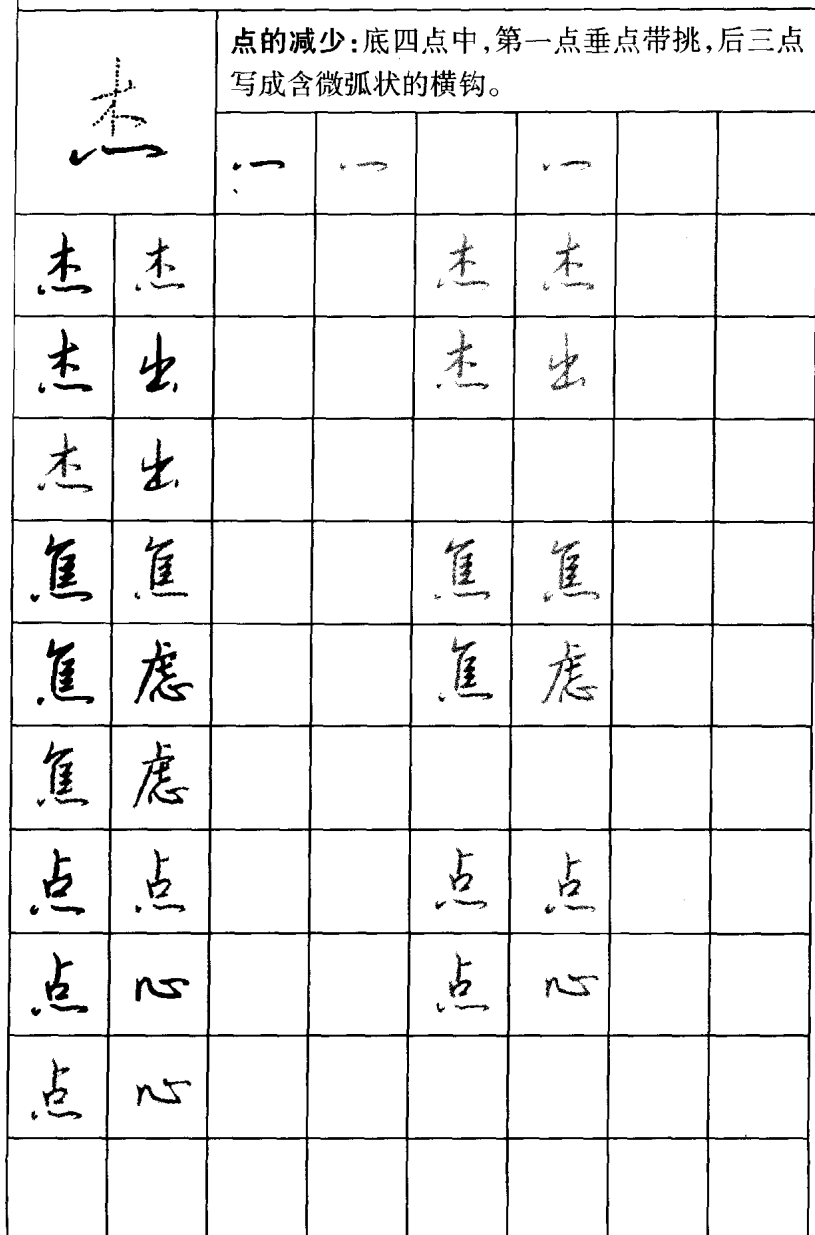 点的减少:底四点中,第一点垂点带挑,后三点
写成含微弧状的横钩。
杰
杰 杰 杰 杰
杰 出 杰 出
杰 出
焦 焦 焦 焦
焦 虑 焦 虑
焦 虑
点 点 点 点
点 心 点 心
点 心